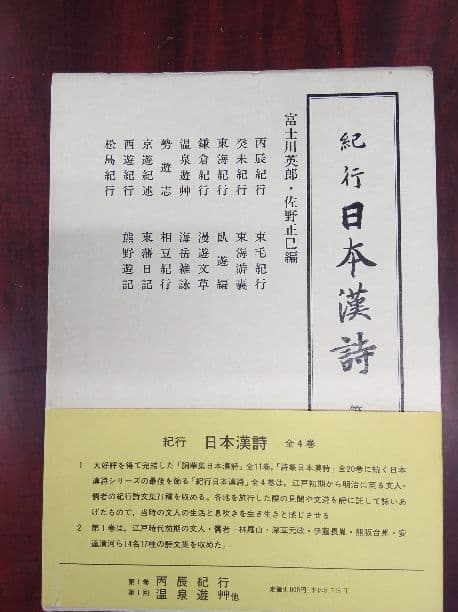 紀行 日本漢詩 第
富士川英郎・佐野正巳編
丙辰紀行 東毛紀行
癸未紀行 東海游嚢
東海紀行 臥遊編
鎌倉紀行 漫遊文草
温泉遊艸 海岳雑詠
勢遊志 相豆紀行
京遊紀述 東藩日記
西遊紀行 熊野遊記
松島紀行
紀行 日本漢詩 全4巻
1 大好評を得て完結した「詞華集日本漢詩」全11巻,「詩集日本漢詩」全20巻に続く日本
漢詩シリーズの最後を飾る「紀行日本漢詩」全4巻は,江戸初期から明治に至る文人・
儒者の紀行詩文集71種を収める。各地を旅行した際の見聞や文遊を詩に託して詠いあ
げたもので,当時の文人の生活と息吹きを生き生きと感じさせる
2 第1巻は,江戸時代前期の文人・儒者―林羅山・深草元政・伊藤長胤・熊阪台州・安
達清河ら14名17種の詩文集を収めた。
第1巻 丙辰紀行
第1回 温泉遊艸他
定価9,000円